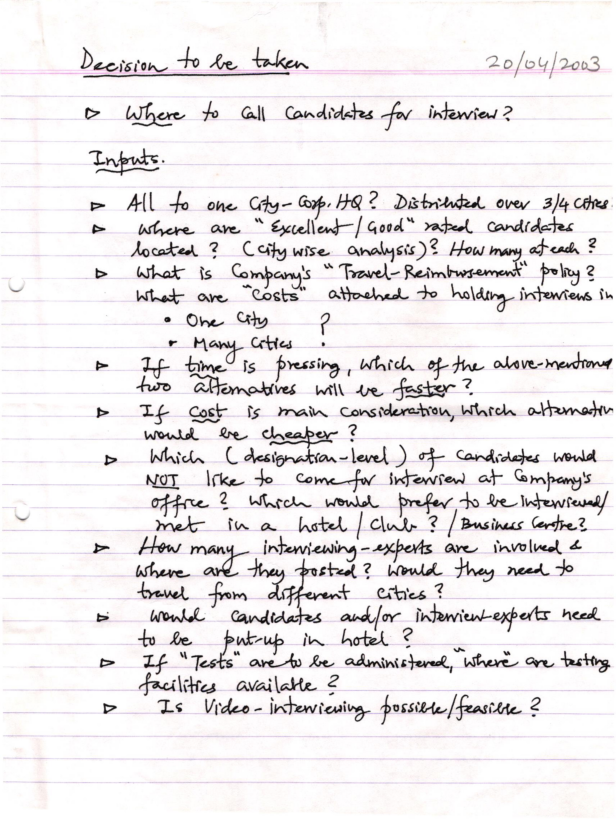 Decision to be taken 20/04/2003
▷ Where to call candidates for interview?
Inputs.
▷ All to one City-Corp. HQ? Distributed over 3/4 cities.
▷ Where are "Excellent/Good" rated candidates
located? (City wise analysis)? How many at each?
▷ What is Company's "Travel-Reimbursement" policy?
What are "costs" attached to holding interviews in
• One City ?
• Many Cities
▷ If time is pressing, which of the above-mentioned
two alternatives will be faster?
▷ If cost is main consideration, which alternativ
would be cheaper?
▷ Which (designation-level) of candidates would
NOT like to come for interview at Company's
office? Which would prefer to be interviewed/
met in a hotel/Club?/Business Centre?
▷ How many interviewing-experts are involved &
where are they posted? Would they need to
travel from different cities?
▷ Would candidates and/or interview-experts need
to be put-up in hotel?
▷ If "Tests" are to be administered, "where" are testing
facilities available?
▷ Is Video-interviewing possible/feasible?